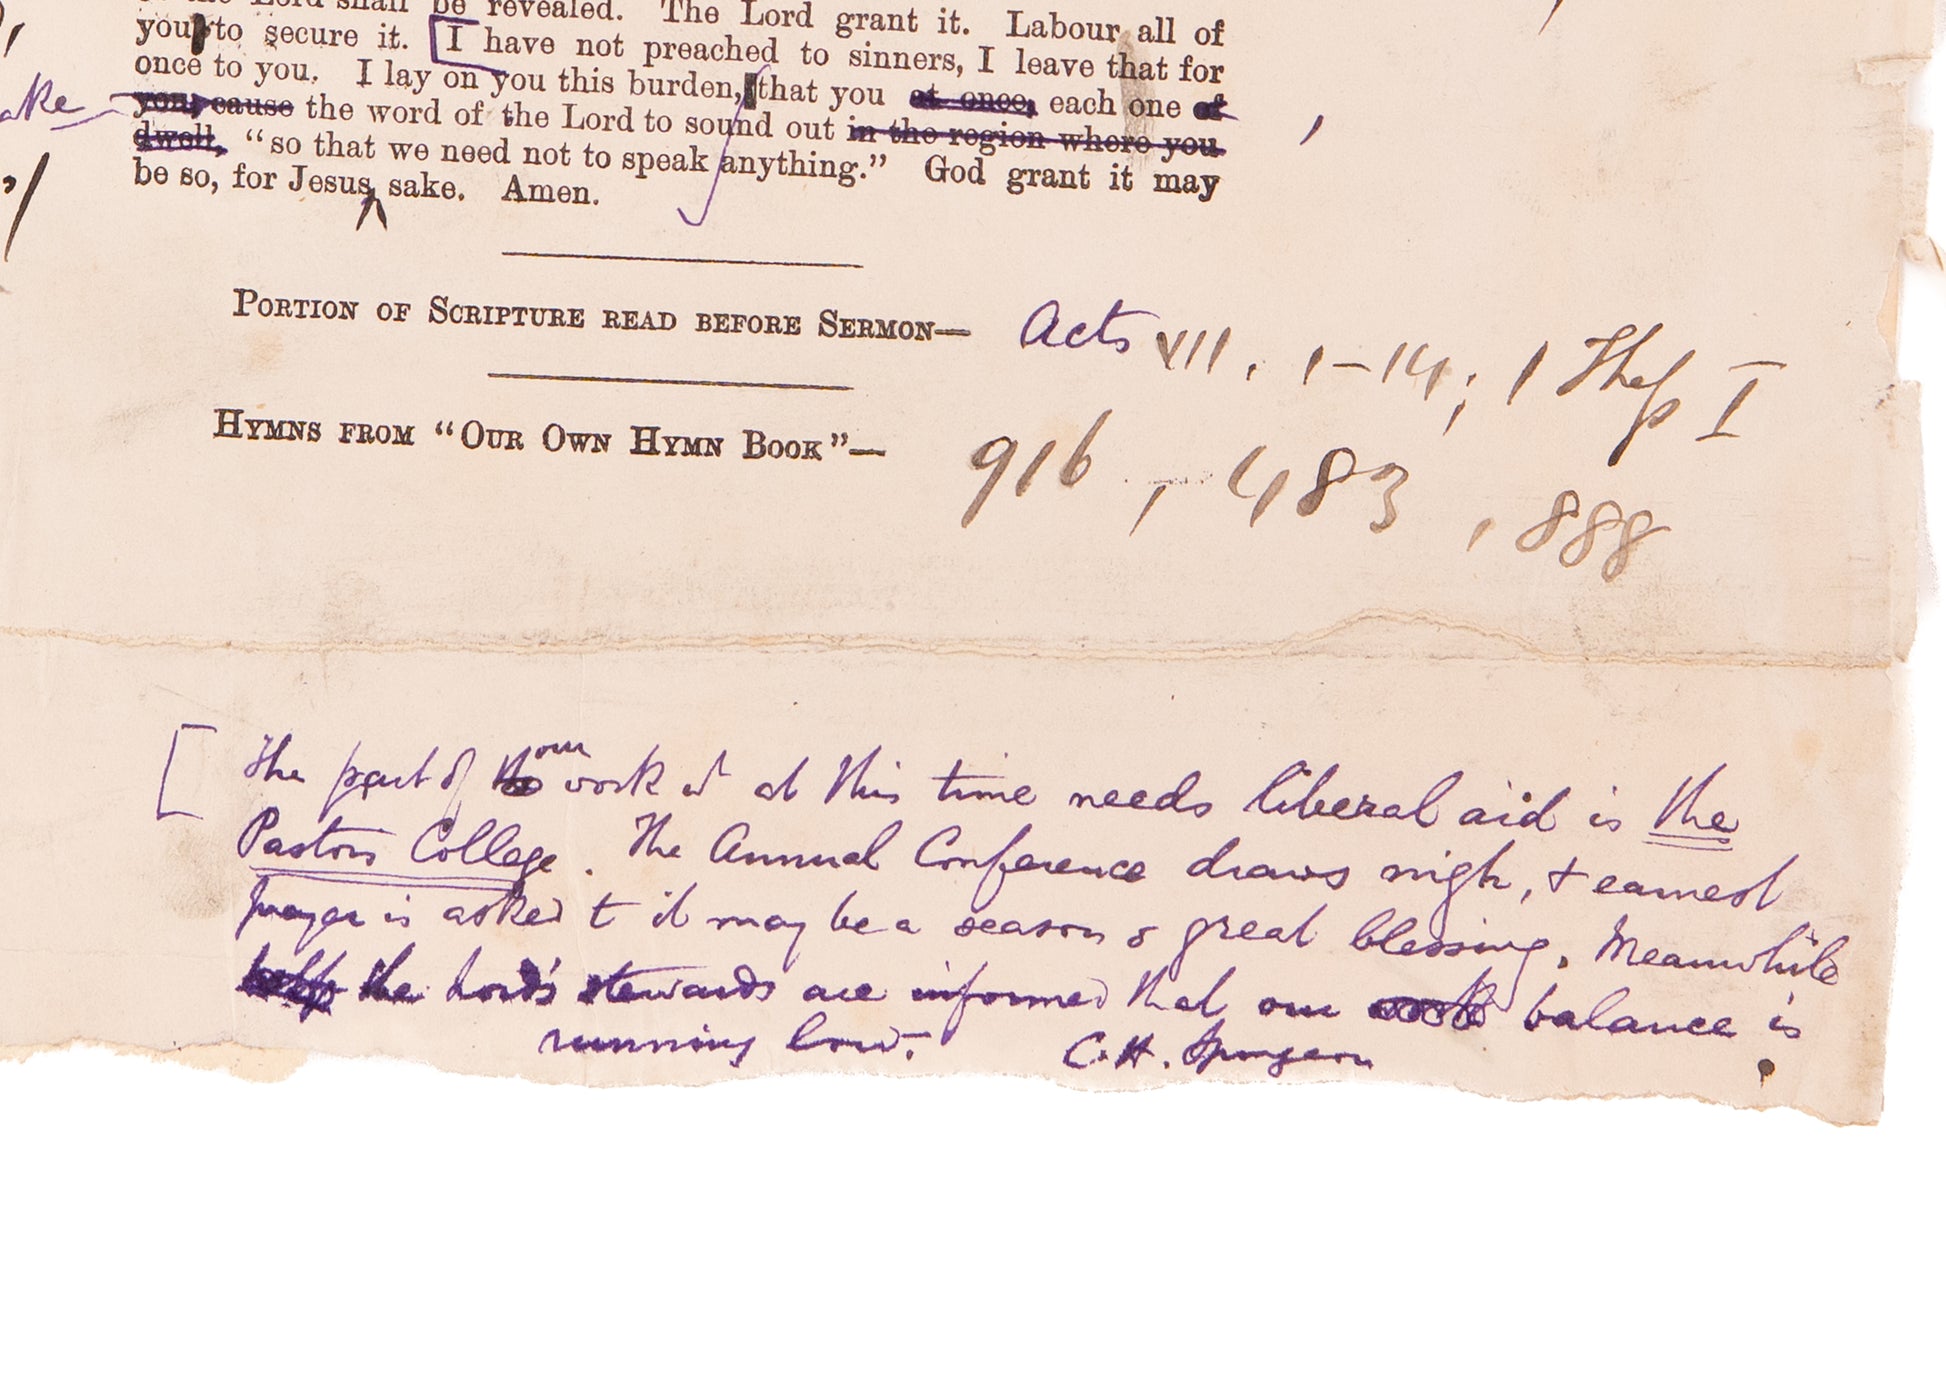 the Lord shall be revealed. The Lord grant it. Labour all of
you to secure it. [I have not preached to sinners, I leave that for
once to you. I lay on you this burden, that you at once, each one of
ake you, cause the word of the Lord to sound out in the region where you
dwell, “so that we need not to speak anything.” God grant it may
be so, for Jesus sake. Amen.
PORTION OF SCRIPTURE READ BEFORE SERMON— Acts VII. 1-14; 1 Thess I
HYMNS FROM “OUR OWN HYMN BOOK”— 916, 483, 888
[The part of the our work wh at this time needs liberal aid is the
Pastors College. The Annual Conference draws nigh, & earnest
prayer is asked t it may be a season o great blessing. Meanwhile
the Lord's stewards are informed that our work balance is
running low. C. H. Spurgeon